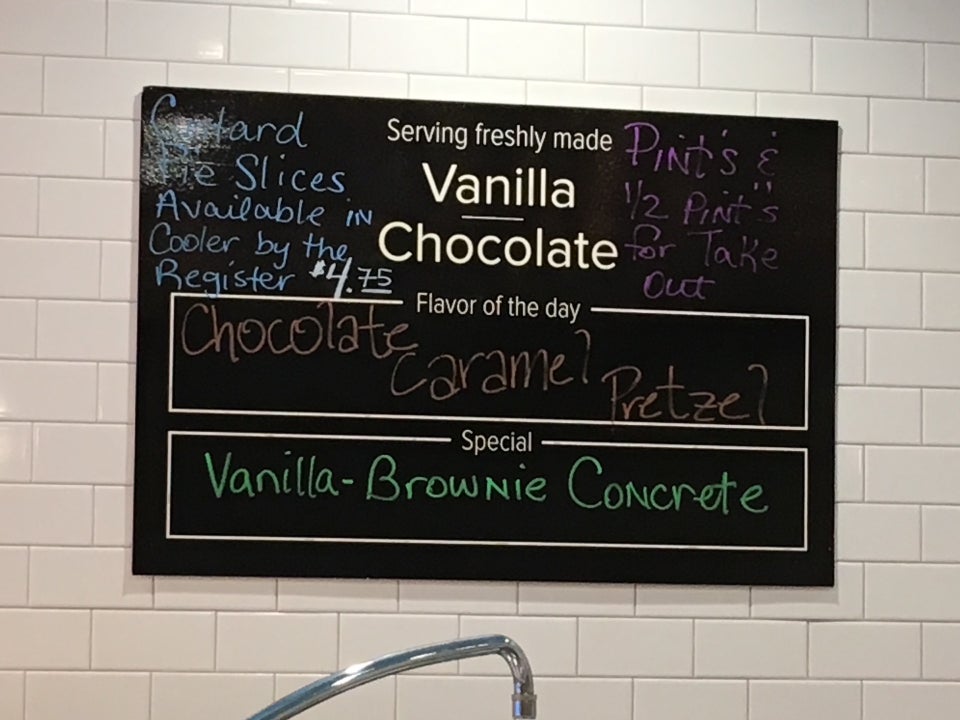 Custard
Pie Slices
Available in
Cooler by the
Register $4.75
Serving freshly made
Vanilla
Chocolate
Pint's &
1/2 Pint's
for Take
Out
Flavor of the day
Chocolate
Caramel
Pretzel
Special
Vanilla-Brownie Concrete